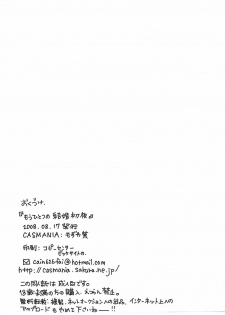 おくづけ.
『もうひとつの結婚初夜』
2008.08.17 発行
CASMANIA:もずみ 翼
印刷: コピーセンター
cain626fai@hotmail.com
http://casmania.sakura.ne.jp/
この同人誌は成人向です。
18歳未満の方の購入、えつらん禁止。
無断転載・複製、ネットオークションへの出品、インターネット上への
アップロードもやめて下さいねーー!